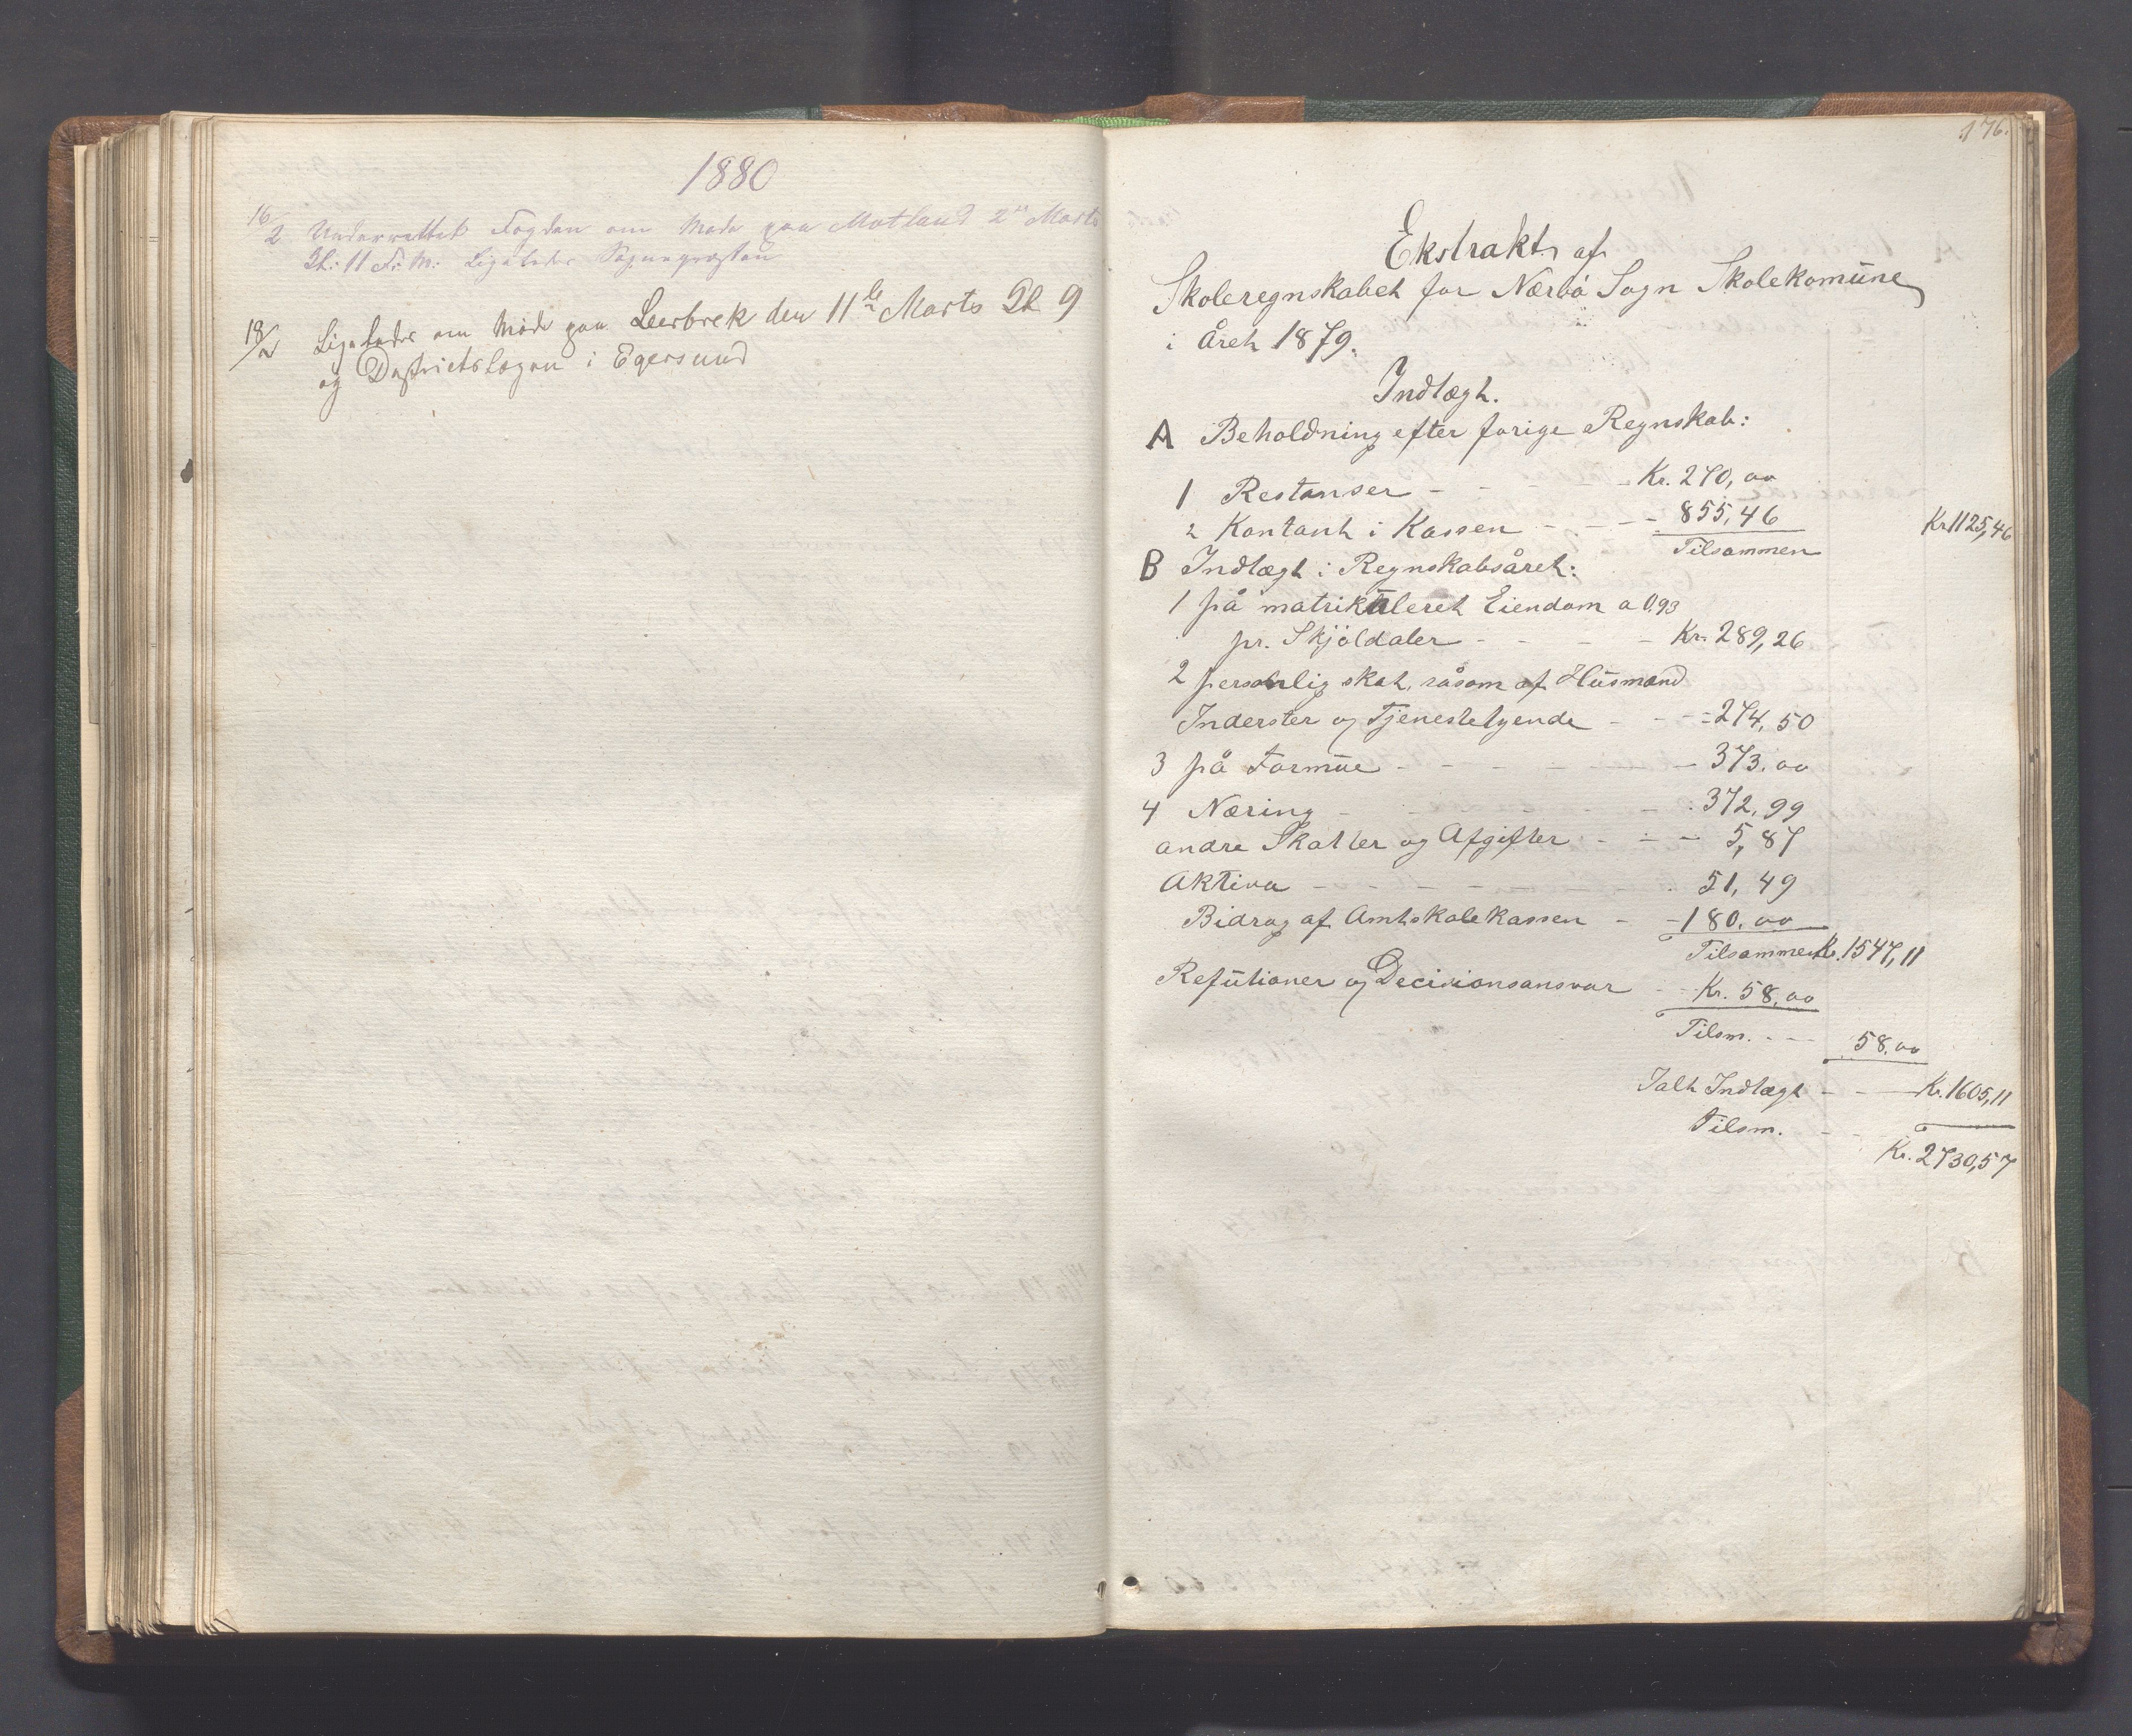 1880
16/2 Underrettet Fogden om Møde paa Motland 2den Marts
Kl: 11 F: M: Ligeledes Sognepræsten
18/2 Ligeledes om Møde paa Leerbrek den 11te Marts Kl 9
og Districtslægen i Egersund
176.
Ekstrakt af
Skoleregnskabet for Nærbø Sogn Skolekomune
i Året 1879.
Indtægt.
A Beholdning efter forige Regnskab:
1 Restanser - - - Kr. 270,00
2 Kontant i Kassen - - - - 855,46
Tilsammen Kr 1125,46
B Indtægt i Regnskabsåret:
1 på matrikuleret Eiendom a 0,93
pr. Skjøldaler - - - - Kr. 289,26
2 personlig skat, såsom af Husmænd
Inderster og Tjenestetyende - - - 274,50
3 på Formue - - - - - - 373.00
4 Næring - - - - - 372,99
andre Skatter og Afgifter - - - 5,87
Aktiva - - - - - - 51,49
Bidrag af Amtskolekassen - - 180.00
Tilsammen Kr. 1547,11
Refutioner og Decisionsansvar - Kr. 58,00
Tilsm. - - - 58.00
Ialt Indtægt - - - Kr. 1605,11
Tilsm. - - Kr. 2730,57